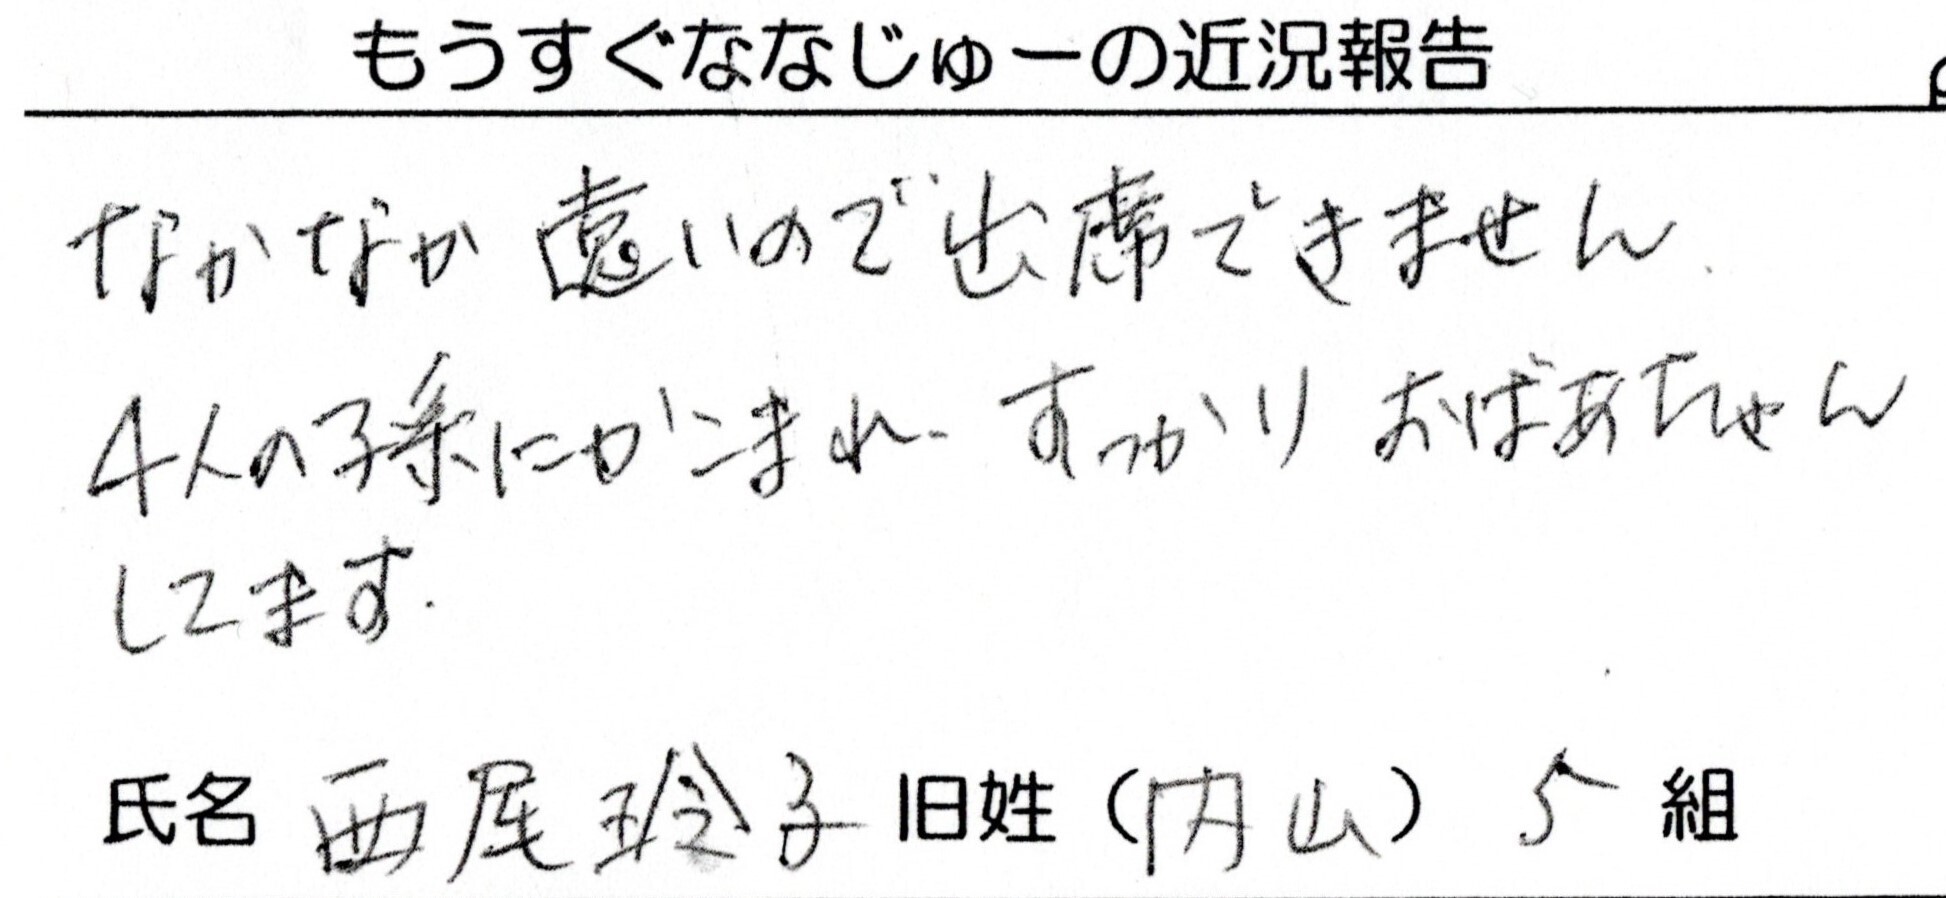 もうすぐななじゅーの近況報告
なかなか遠いので出席できません.
4人の孫にかこまれ、すっかりおばあちゃん
してます.
氏名 西尾玲子 旧姓(内山) 5組